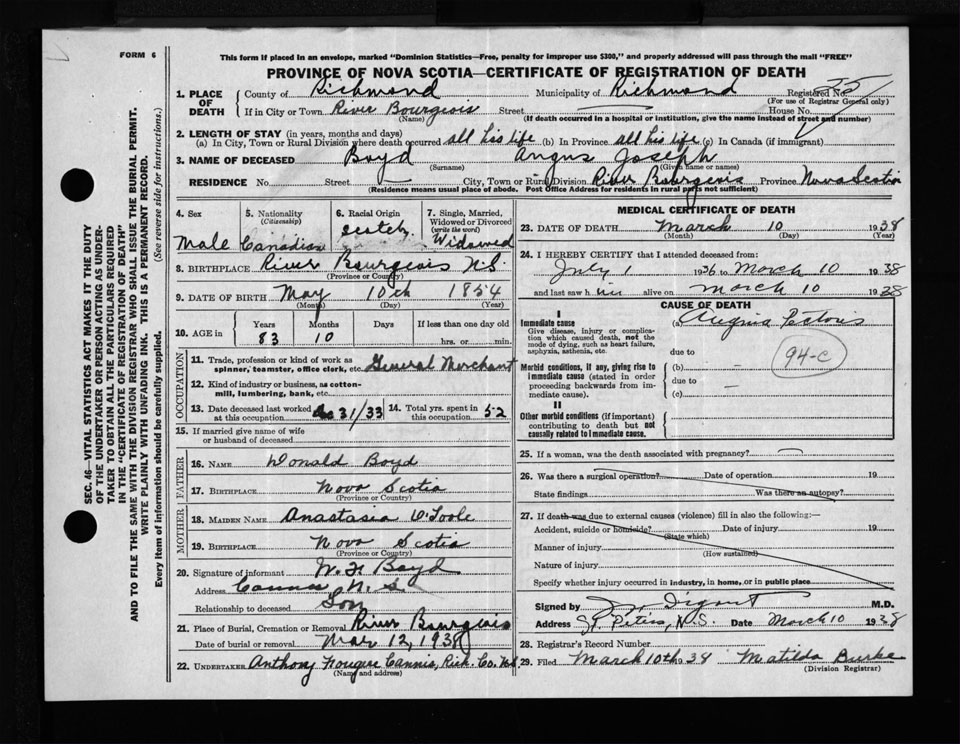 FORM 6
This form if placed in an envelope, marked "Dominion Statistics—Free, penalty for improper use $300," and properly addressed will pass through the mail "FREE"
PROVINCE OF NOVA SCOTIA—CERTIFICATE OF REGISTRATION OF DEATH
1. PLACE OF DEATH County of Richmond Municipality of Richmond Registered No.
(For use of Registrar General only)
If in City or Town River Bourgeois Street House No.
(Name) (If death occurred in a hospital or institution, give the name instead of street and number)
2. LENGTH OF STAY (in years, months and days)
(a) In City, Town or Rural Division where death occurred all his life (b) In Province all his life (c) In Canada (if immigrant)
3. NAME OF DECEASED Boyd Angus Joseph
(Surname) (Given name or names)
RESIDENCE No. Street City, Town or Rural Division River Bourgeois Province Nova Scotia
(Residence means usual place of abode. Post Office Address for residents in rural parts not sufficient)
4. Sex Male
5. Nationality (Citizenship) Canadian
6. Racial Origin Scotch
7. Single, Married, Widowed or Divorced (write the word) Widowed
8. BIRTHPLACE River Bourgeois N.S.
(Province or County)
9. DATE OF BIRTH May 10th 1854
(Month) (Day) (Year)
10. AGE in Years 83 Months 10 Days If less than one day old hrs. or min.
OCCUPATION
11. Trade, profession or kind of work as spinner, teamster, office clerk, etc. General Merchant
12. Kind of industry or business, as cotton-mill, lumbering, bank, etc.
13. Date deceased last worked at this occupation 31/33 14. Total yrs. spent in this occupation 52
15. If married give name of wife or husband of deceased
FATHER
16. NAME Donald Boyd
17. BIRTHPLACE Nova Scotia
(Province or Country)
MOTHER
18. MAIDEN NAME Anastasia O'Toole
19. BIRTHPLACE Nova Scotia
(Province or Country)
20. Signature of informant Boyd
Address Cannes N.S.
Relationship to deceased Son
21. Place of Burial, Cremation or Removal River Bourgeois
Date of burial or removal Mar 12, 1938
22. UNDERTAKER Anthony Fougere Cannes, Rich. Co. N.S.
(Name and address)
MEDICAL CERTIFICATE OF DEATH
23. DATE OF DEATH March 10 1938
(Month) (Day) (Year)
24. I HEREBY CERTIFY that I attended deceased from:
July 1 1936 to March 10 1938
and last saw him alive on March 10 1938
CAUSE OF DEATH
I
Immediate cause
Give disease, injury or complication which caused death, not the mode of dying, such as heart failure, asphyxia, asthenia, etc.
(a) Angina Pectoris
94-c
due to
Morbid conditions, if any, giving rise to immediate cause (stated in order proceeding backwards from immediate cause).
(b) —
due to
(c) —
II
Other morbid conditions (if important) contributing to death but not causally related to immediate cause.
25. If a woman, was the death associated with pregnancy?
26. Was there a surgical operation? Date of operation 19
State findings Was there an autopsy?
27. If death was due to external causes (violence) fill in also the following:—
Accident, suicide or homicide? Date of injury 19
(State which)
Manner of injury
(How sustained)
Nature of injury
Specify whether injury occurred in industry, in home, or in public place
Signed by M.D.
Address St. Peters, N.S. Date March 10 1938
28. Registrar's Record Number
29. Filed March 10th 1938 Matilda Burke
(Division Registrar)
SEC. 46—VITAL STATISTICS ACT MAKES IT THE DUTY
OF THE UNDERTAKER OR PERSON ACTING AS UNDER-
TAKER TO OBTAIN ALL THE PARTICULARS REQUIRED
IN THE "CERTIFICATE OF REGISTRATION OF DEATH"
AND TO FILE THE SAME WITH THE DIVISION REGISTRAR WHO SHALL ISSUE THE BURIAL PERMIT.
WRITE PLAINLY WITH UNFADING INK. THIS IS A PERMANENT RECORD.
Every item of information should be carefully supplied. (See reverse side for instructions.)